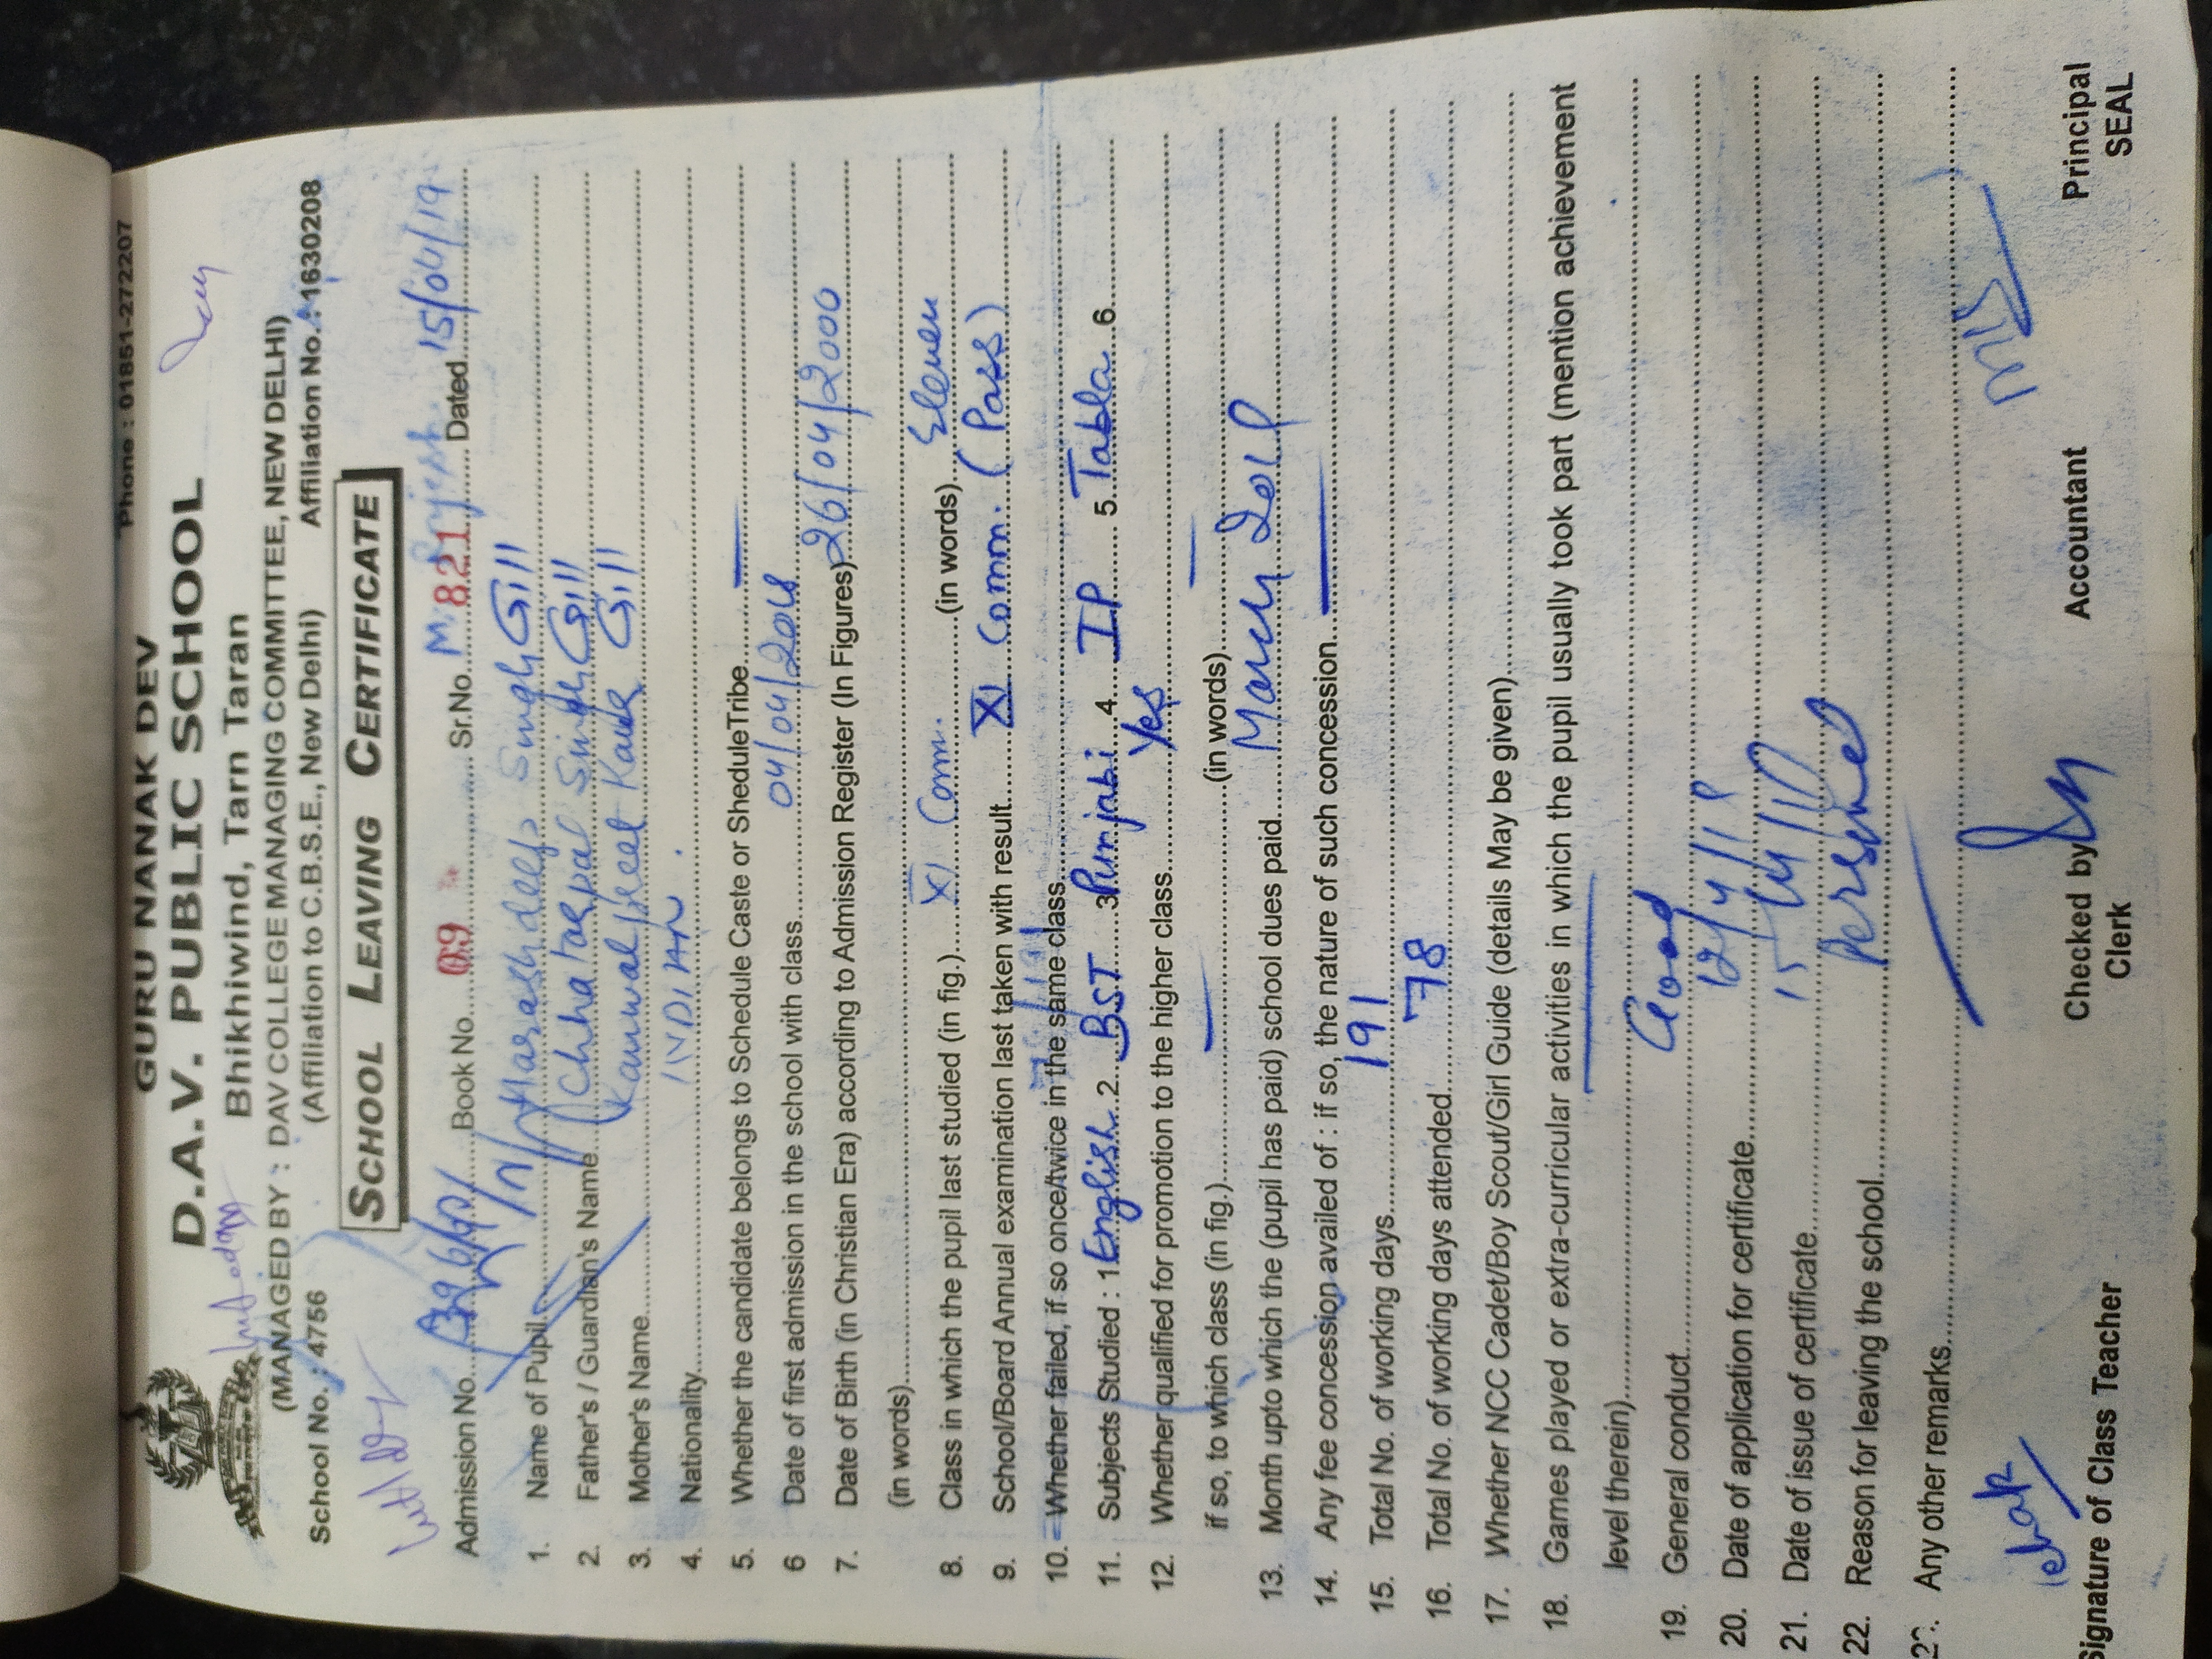 Phone : 01851-272207
GURU NANAK DEV
D.A.V. PUBLIC SCHOOL
Bhikhiwind, Tarn Taran
(MANAGED BY : DAV COLLEGE MANAGING COMMITTEE, NEW DELHI)
(Affiliation to C.B.S.E., New Delhi)
School No. : 4756 Affiliation No. : 1630208
SCHOOL LEAVING CERTIFICATE
Admission No. Book No. 09 Sr.No. 821 Dated 15/04/19
1. Name of Pupil Harashdeep Singh Gill
2. Father's / Guardian's Name Chhatarpal Singh Gill
3. Mother's Name Kanwalpreet Kaur Gill
4. Nationality INDIAN.
5. Whether the candidate belongs to Schedule Caste or SheduleTribe —
6 Date of first admission in the school with class 04/04/2018
7. Date of Birth (in Christian Era) according to Admission Register (In Figures) 26/04/2000
(in words)
8. Class in which the pupil last studied (in fig.) XI Com. (in words) Eleven
9. School/Board Annual examination last taken with result XI Comm. (Pass)
10. Whether failed, if so once/twice in the same class
11. Subjects Studied : 1 English 2 BST 3 Punjabi 4 IP 5 Tabla 6
12. Whether qualified for promotion to the higher class Yes
if so, to which class (in fig.) — (in words) —
13. Month upto which the (pupil has paid) school dues paid March
14. Any fee concession availed of : if so, the nature of such concession —
15. Total No. of working days 191
16. Total No. of working days attended 78
17. Whether NCC Cadet/Boy Scout/Girl Guide (details May be given)
18. Games played or extra-curricular activities in which the pupil usually took part (mention achievement
level therein) —
19. General conduct Good
20. Date of application for certificate
21. Date of issue of certificate
22. Reason for leaving the school Personal
Any other remarks
Signature of Class Teacher Checked by Clerk Accountant Principal SEAL